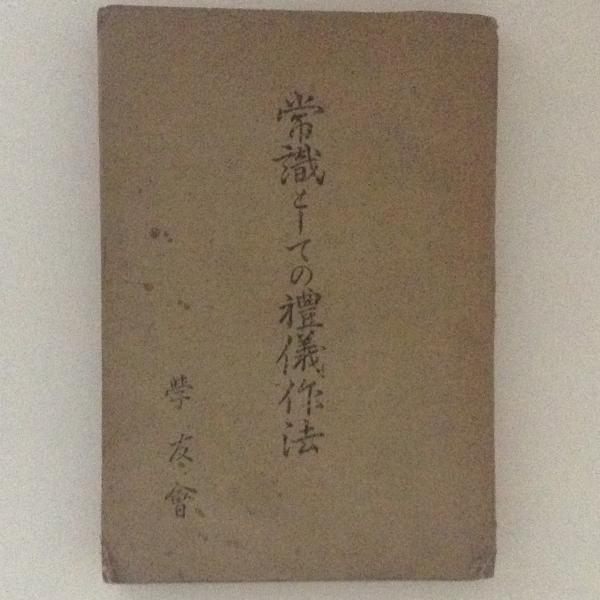 常識としての禮儀作法
學友會